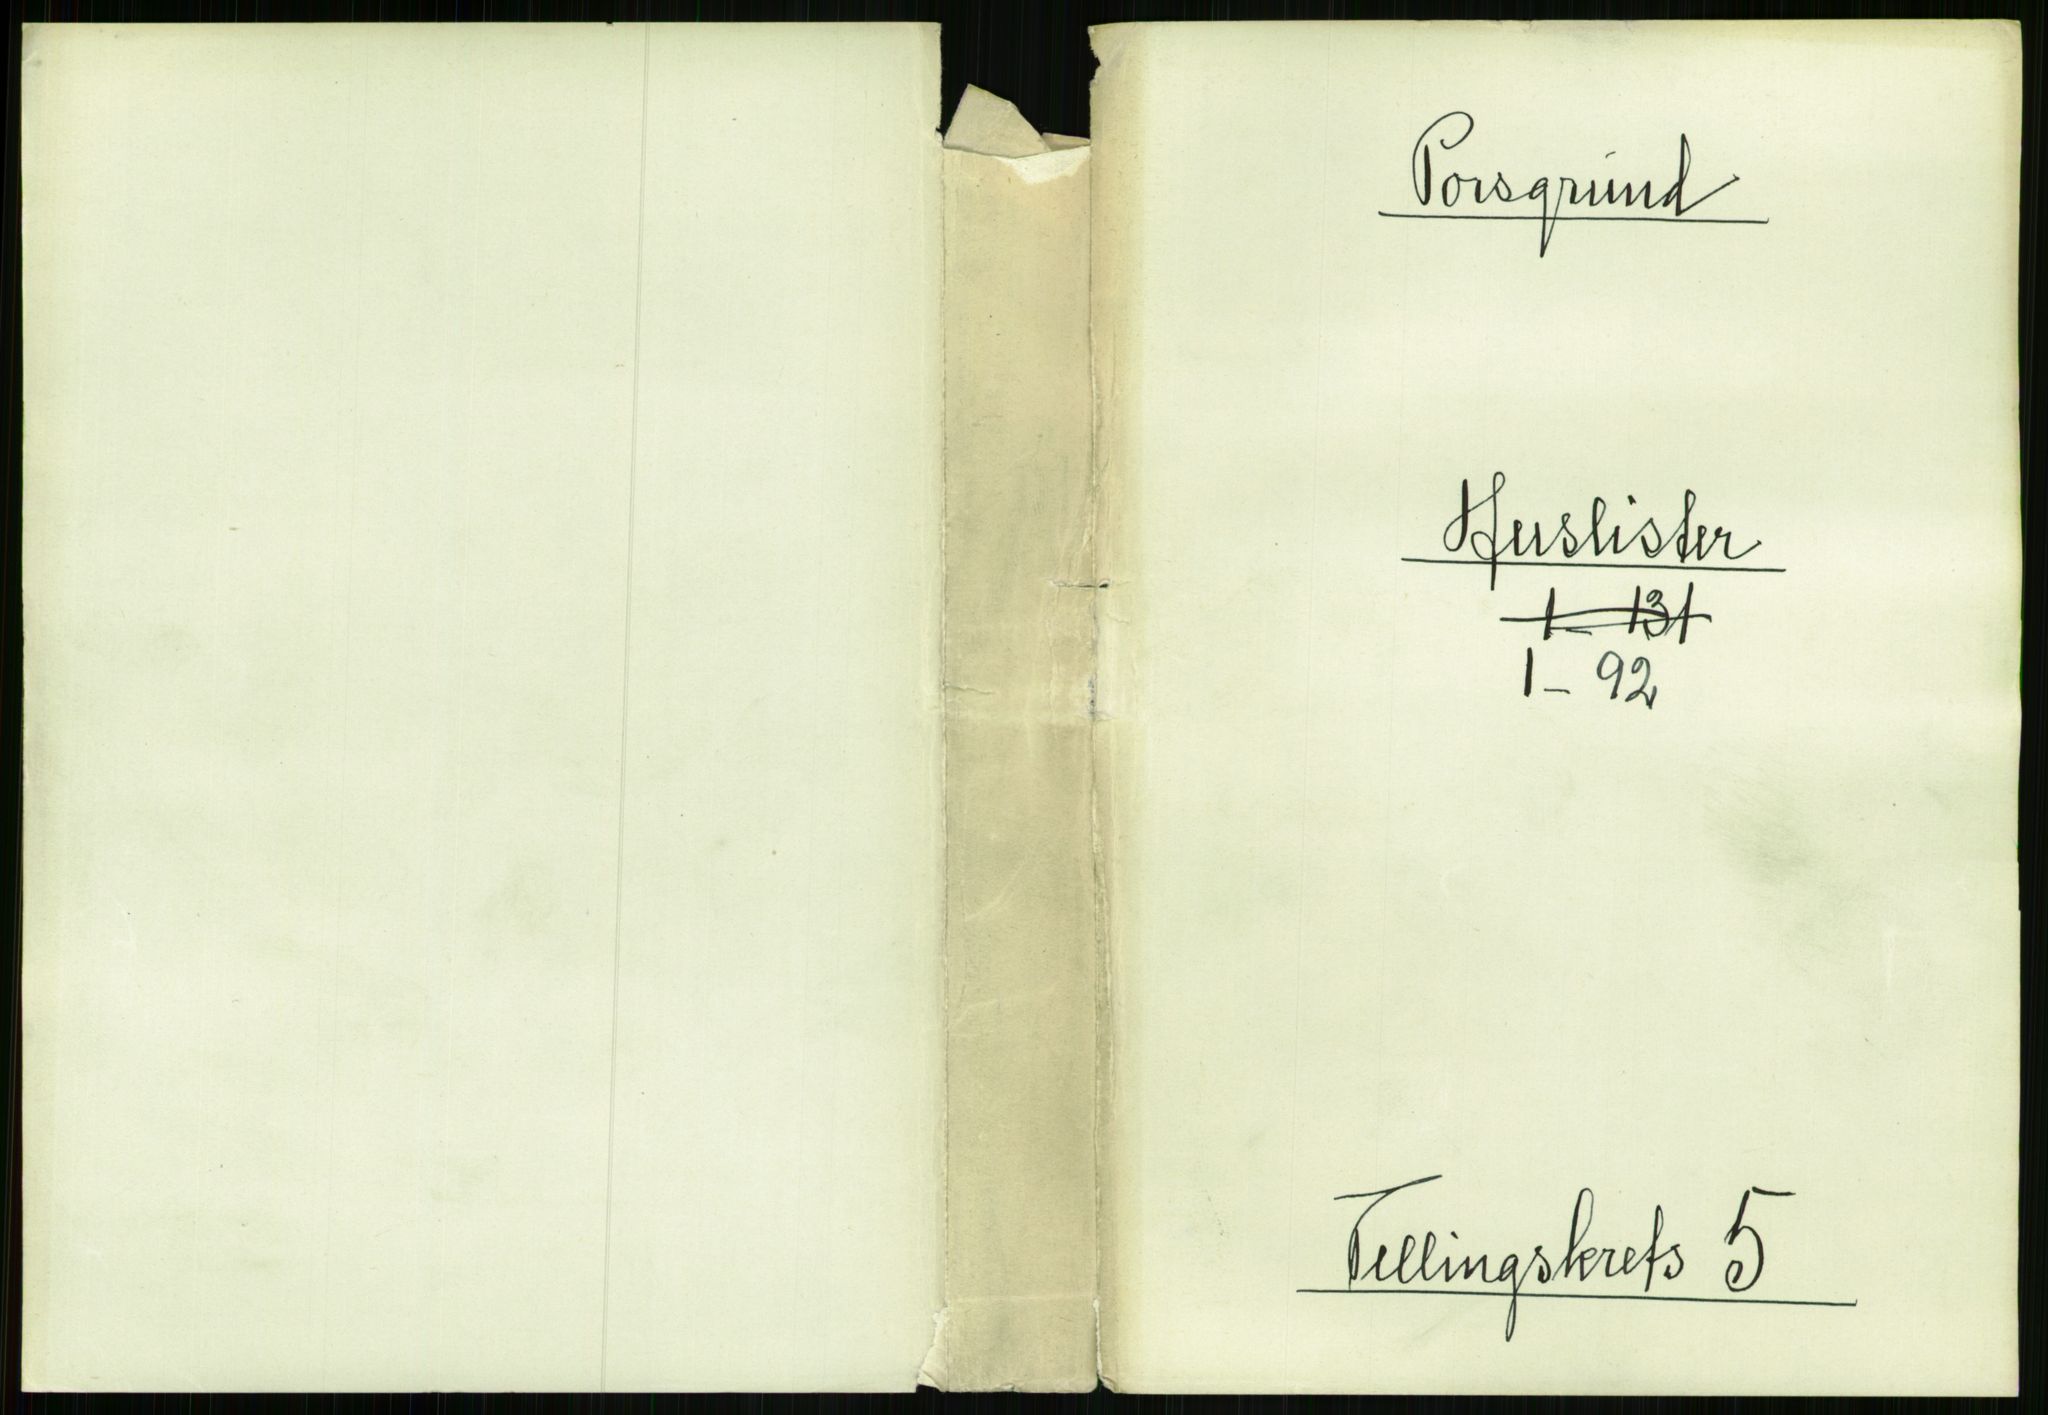 Porsgrund
Huslister
1 - 131
1 - 92
Tellingskrets 5